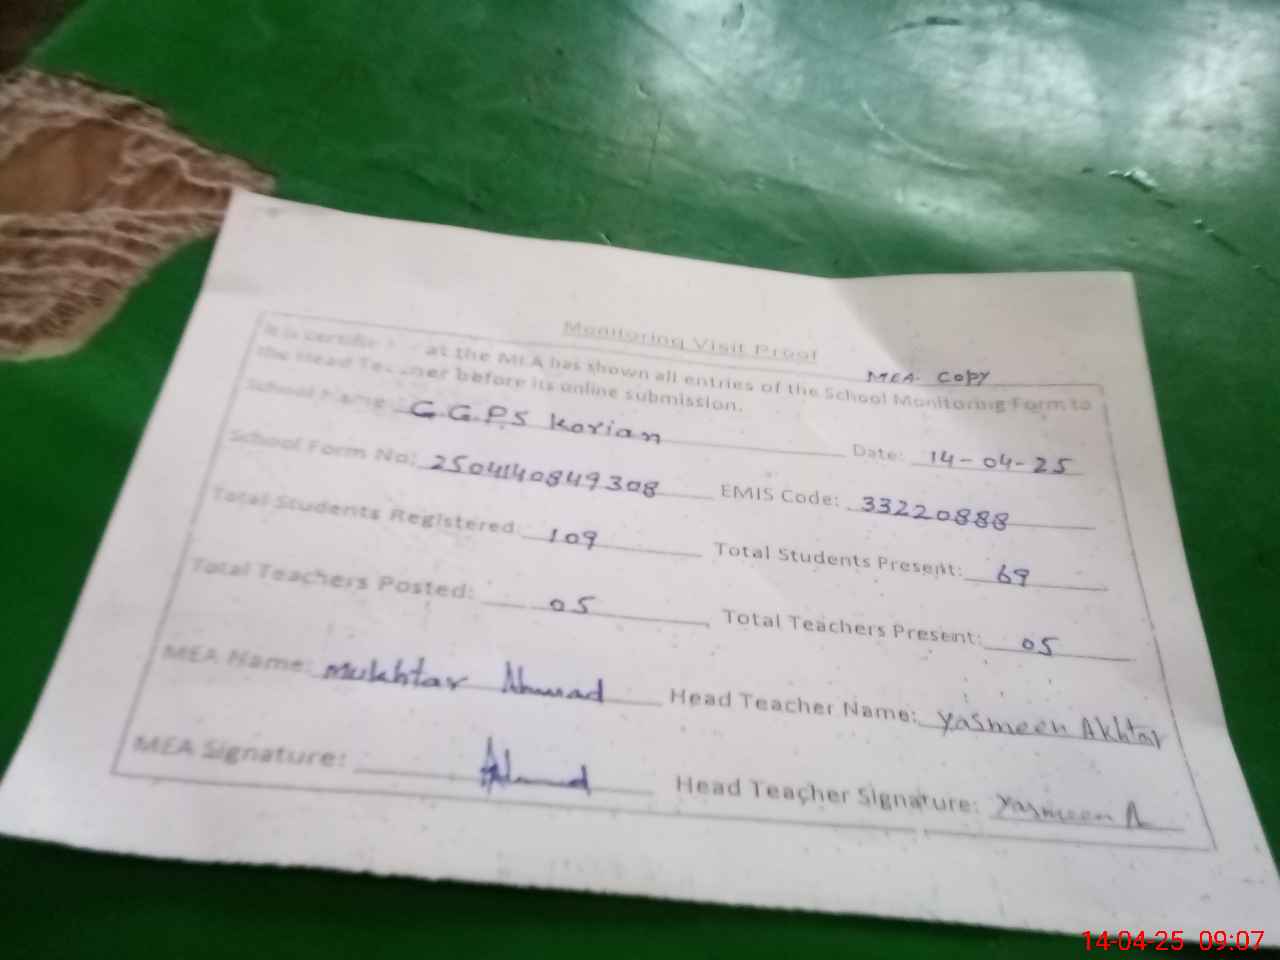 Monitoring Visit Proof
MEA COPY
It is certifie at the MEA has shown all entries of the School Monitoring Form to
the Head Te ner before its online submission.
School Name: G.G.P.S Korian Date: 14-04-25
School Form No: 2504140849308 EMIS Code: 33220888
Total Students Registered: 109 Total Students Present: 69
Total Teachers Posted: 05 Total Teachers Present: 05
MEA Name: Mukhtar Ahmad Head Teacher Name: Yasmeen Akhtar
MEA Signature: Ahmad Head Teacher Signature: Yasmeen A
14-04-25 09:07